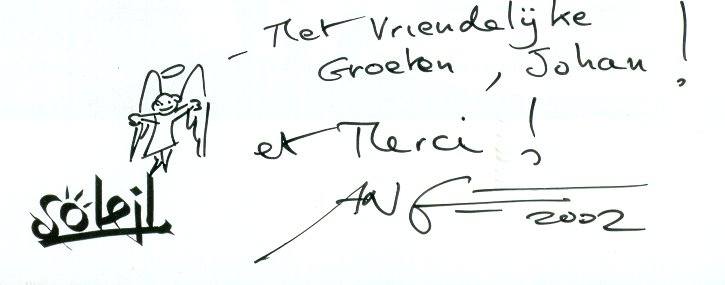 - Met Vriendelijke
Groeten, Johan!
et Merci!
2002
soleil